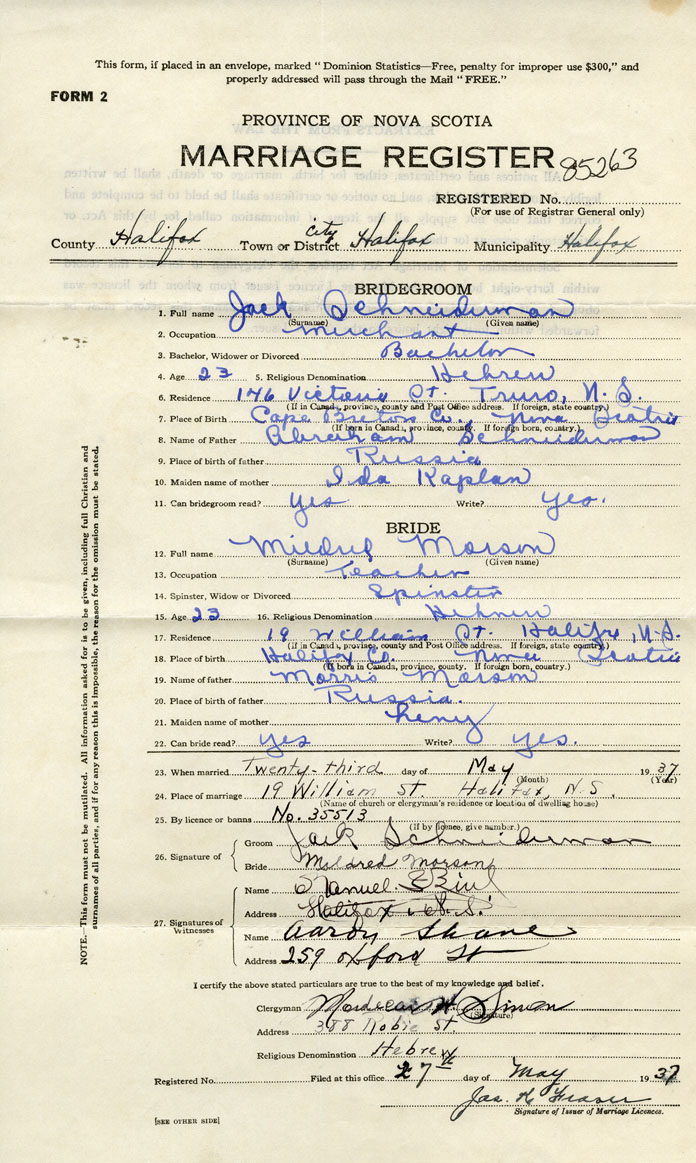 This form, if placed in an envelope, marked " Dominion Statistics—Free, penalty for improper use $300," and
properly addressed will pass through the Mail " FREE."
FORM 2
PROVINCE OF NOVA SCOTIA
MARRIAGE REGISTER 85263
REGISTERED No.
(For use of Registrar General only)
County Halifax Town or District city Halifax Municipality Halifax
BRIDEGROOM
1. Full name Jack Schneiduman
(Surname) (Given name)
2. Occupation Merchant
3. Bachelor, Widower or Divorced Bachelor
4. Age 23 5. Religious Denomination Hebrew
6. Residence 176 Victoria St. Truro, N.S.
(If in Canada, province, county and Post Office address. If foreign, state country.)
7. Place of Birth Cape Breton Co. Nova Scotia
(If born in Canada, province, county. If foreign born, country.)
8. Name of Father Abraham Schneiduman
9. Place of birth of father Russia
10. Maiden name of mother Ida Kaplan
11. Can bridegroom read? yes Write? yes.
BRIDE
12. Full name Mildred Morson
(Surname) (Given name)
13. Occupation Teacher
14. Spinster, Widow or Divorced Spinster
15. Age 23 16. Religious Denomination Hebrew
17. Residence 19 William St. Halifax, N.S.
(If in Canada, province, county and Post Office address. If foreign, state country.)
18. Place of birth Halifax Co. Nova Scotia
(If born in Canada, province, county. If foreign born, country.)
19. Name of father Morris Morson
20. Place of birth of father Russia.
21. Maiden name of mother
22. Can bride read? yes Write? yes.
23. When married Twenty-third day of May 1937
(Month) (Year)
24. Place of marriage 19 William St Halifax, N.S.
(Name of church or clergyman's residence or location of dwelling house)
25. By licence or banns No. 35513
(If by licence, give number.)
26. Signature of
Groom Jack Schneiduman
Bride Mildred Morson
27. Signatures of Witnesses
Name Manuel
Address Halifax N.S.
Name Shane
Address 259 Oxford St
I certify the above stated particulars are true to the best of my knowledge and belief.
Clergyman Mordecai H. Simon
(Signature)
Address 388 Robie St.
Religious Denomination Hebrew
Registered No. Filed at this office 27th day of May 1937
Jas. H Fraser
Signature of Issuer of Marriage Licences.
[SEE OTHER SIDE]
NOTE.—This form must not be mutilated. All information asked for is to be given, including full Christian and
surnames of all parties, and if for any reason this is impossible, the reason for the omission must be stated.